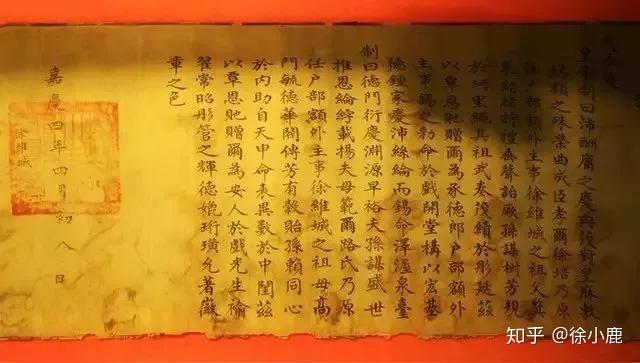 天承運
皇帝制曰沛酬庸之慶典茂對皇庥敷
錫類之殊榮曲成臣孝爾徐培乃原
任戶部額外主事徐維城之祖父箕
裘紹緒詩禮垂聲詒厥孫謀樹芳規
於珂里繩其祖武奏茂績於彤廷茲
以覃恩貤贈爾為承德郎戶部額外
主事錫之勅命於戲開堂構以宏基
德鍾家慶沛絲綸而錫命澤溼泉臺
制曰德門衍慶淵源早裕夫孫謀盛世
推恩綸綍載揚夫母範爾路氏乃原
任戶部額外主事徐維城之祖母高
門毓德華閥傳芳有穀貽孫賴同心
於內助自天申命表異數於中閨茲
以覃恩貤贈爾為安人於戲光生褕
翟常昭彤管之輝德媲珩璜允著徽
章之色
嘉慶四年四月初八日
徐維城
知乎 @徐小鹿